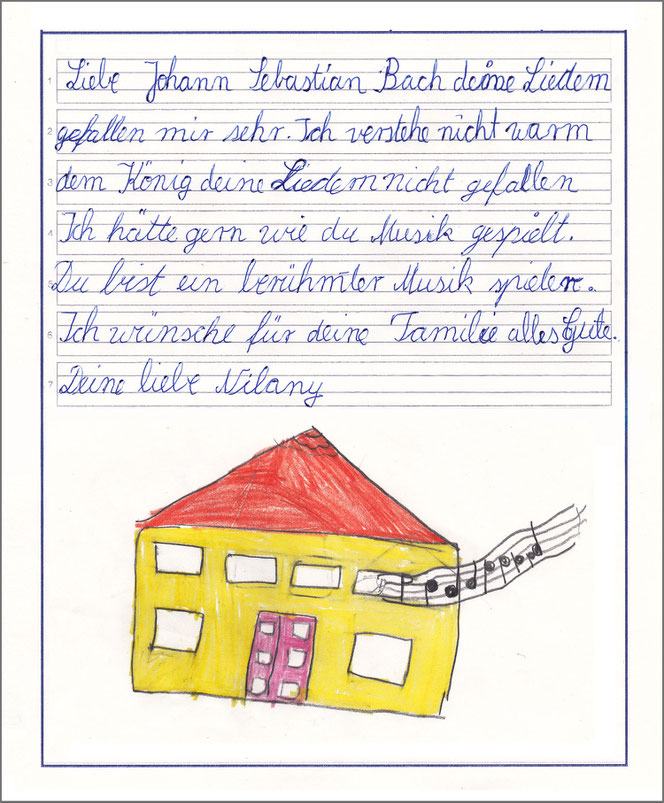 1 Liebe Johann Sebastian Bach deine Liedern
2 gefallen mir sehr. Ich verstehe nicht warm
3 dem König deine Liedern nicht gefallen
4 Ich hätte gern wie du Musik gespielt.
5 Du bist ein berühmter Musik spieler.
6 Ich wünsche für deine Familie alles Gute.
7 Deine liebe Nilany